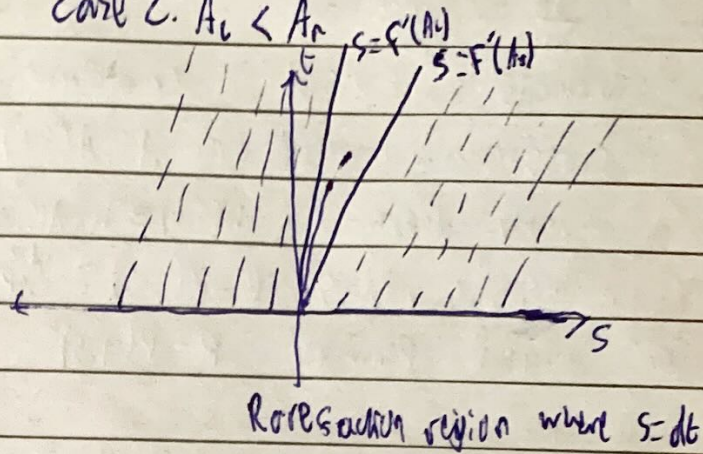 Case 2. A_L < A_R
t
S=F'(A_L)
S=F'(A_R)
S
Raresaction region where S=dt